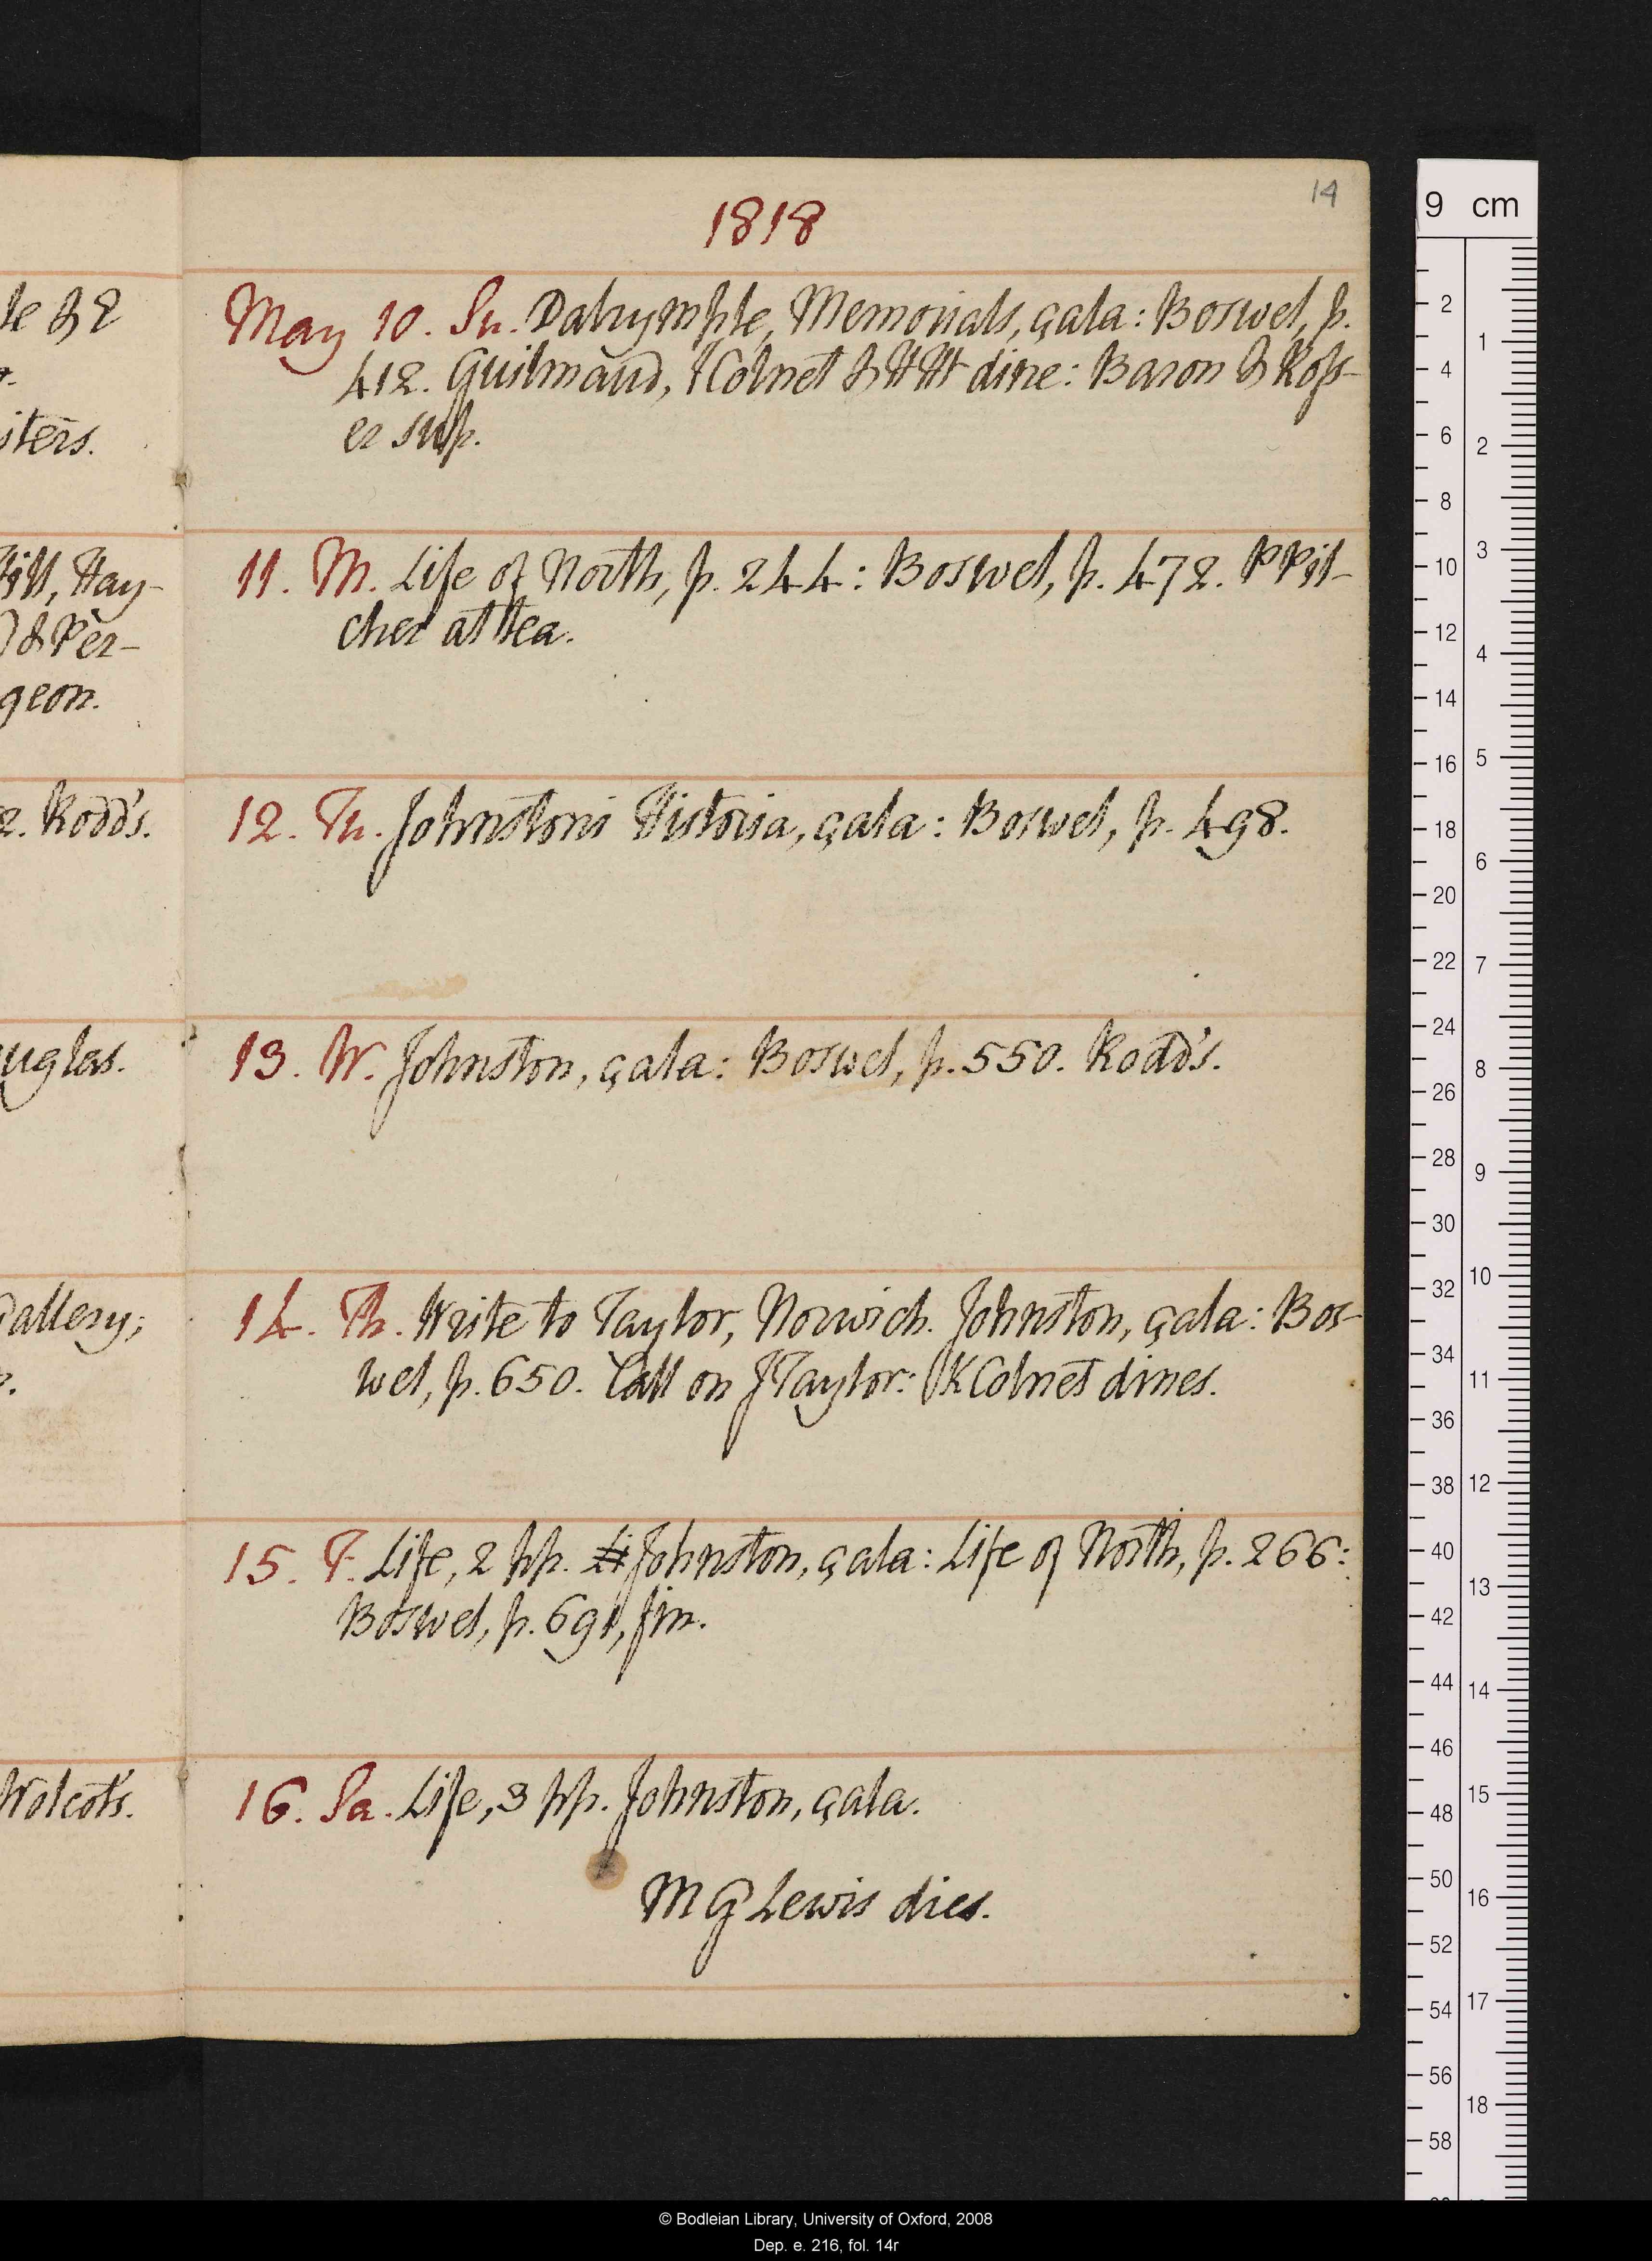 14
1818
le & 2
iters.
May 10. Su. Dalrymple, Memorials, çala: Boswel, p.
412. Guilmaud, KColnet & HHt dine: Baron & Ross-
er sup.
ill, Hay-
) & Per-
geon.
11. M. Life of North, p. 244: Boswel, p. 472. PPil-
cher at tea.
2. Rodd's.
12. Tu. Johnstoni Historia, çala: Boswel, p. 498.
uglas.
13. W. Johnston, çala: Boswel, p. 550. Rodd's.
Gallery;
14. Th. Write to Taylor, Norwich. Johnston, çala: Bos-
wel, p. 650. Call on JTaylor: KColnet dines.
15. F. Life, 2 pp. Li Johnston, çala: Life of North, p. 266:
Boswel, p. 691, fin.
Wolcot's.
16. Sa. Life, 3 pp. Johnston, çala.
M G Lewis dies.
9 cm
2
4
6
8
10
12
14
16
18
20
22
24
26
28
30
32
34
36
38
40
42
44
46
48
50
52
54
56
58
1
2
3
4
5
6
7
8
9
10
11
12
13
14
15
16
17
18
© Bodleian Library, University of Oxford, 2008
Dep. e. 216, fol. 14r